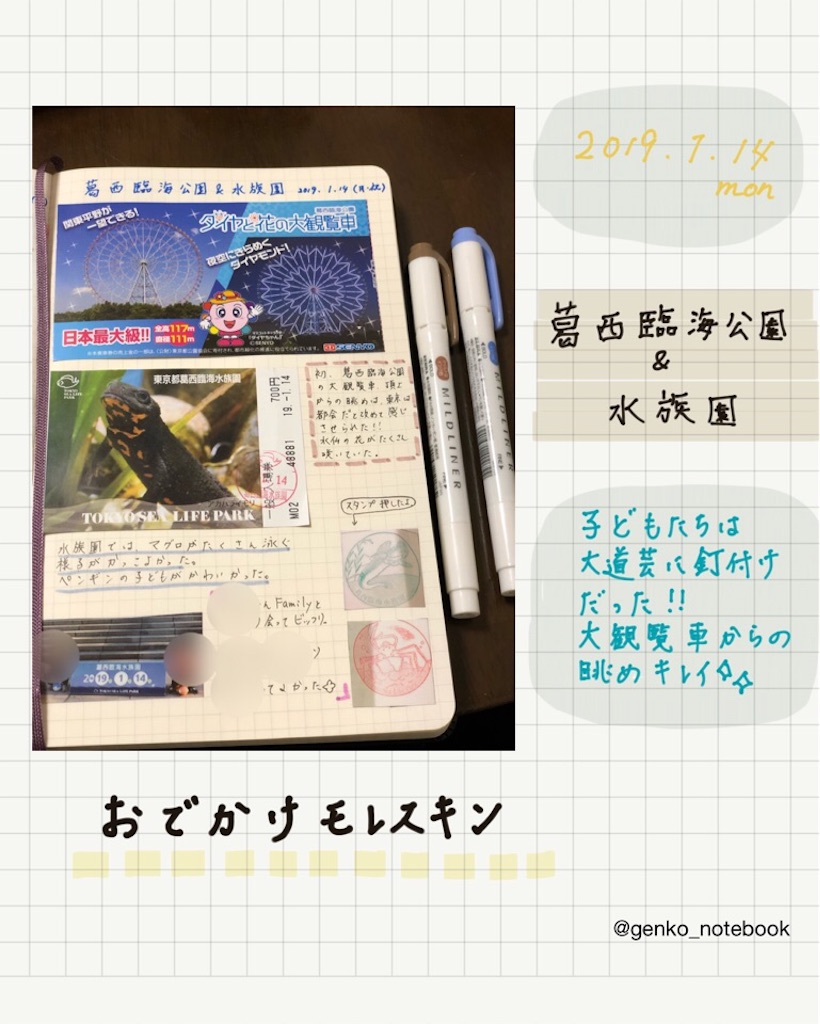 2019.1.14
mon
葛西臨海公園
&
水族園
子どもたちは
大道芸に釘付け
だった!!
大観覧車からの
眺めキレイ
葛西臨海公園&水族園 2019.1.14(月・祝)
関東平野が
一望できる!
葛西臨海公園
ダイヤと花の大観覧車
夜空にきらめく
ダイヤモンド!
日本最大級!!
全高117m
直径111m
SENYO
TOKYO
SEA LIFE
PARK
東京都葛西臨海水族園
TOKYO SEA LIFE PARK
700円
19.-1.14
46881
M02
14
初、葛西臨海公園
の大観覧車 頂上
からの眺めは、東京は
都会だと改めて感じ
させられた!!
水仙の花がたくさん
咲いていた。
水族園では、マグロがたくさん泳ぐ
様子がかっこよかった。
ペンギンの子どもがかわいかった。
スタンプ押したよ
んFamilyと
会ってビックリ。
てよかった
葛西臨海水族園
2019年1月14日
TOKYO SEA LIFE PARK
MILDLINER
おでかけモレスキン
@genko_notebook